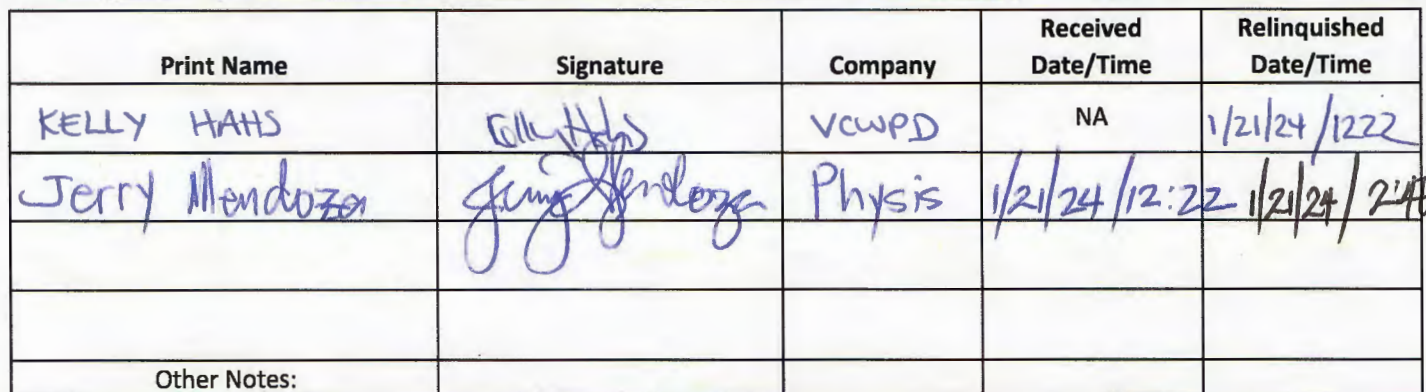 Print Name Signature Company Received Date/Time Relinquished Date/Time
KELLY HAHS Kelly Hahs VCWPD NA 1/21/24 /1222
Jerry Mendoza Jerry Mendoza Physis 1/21/24 /12:22 1/21/24 /
Other Notes: